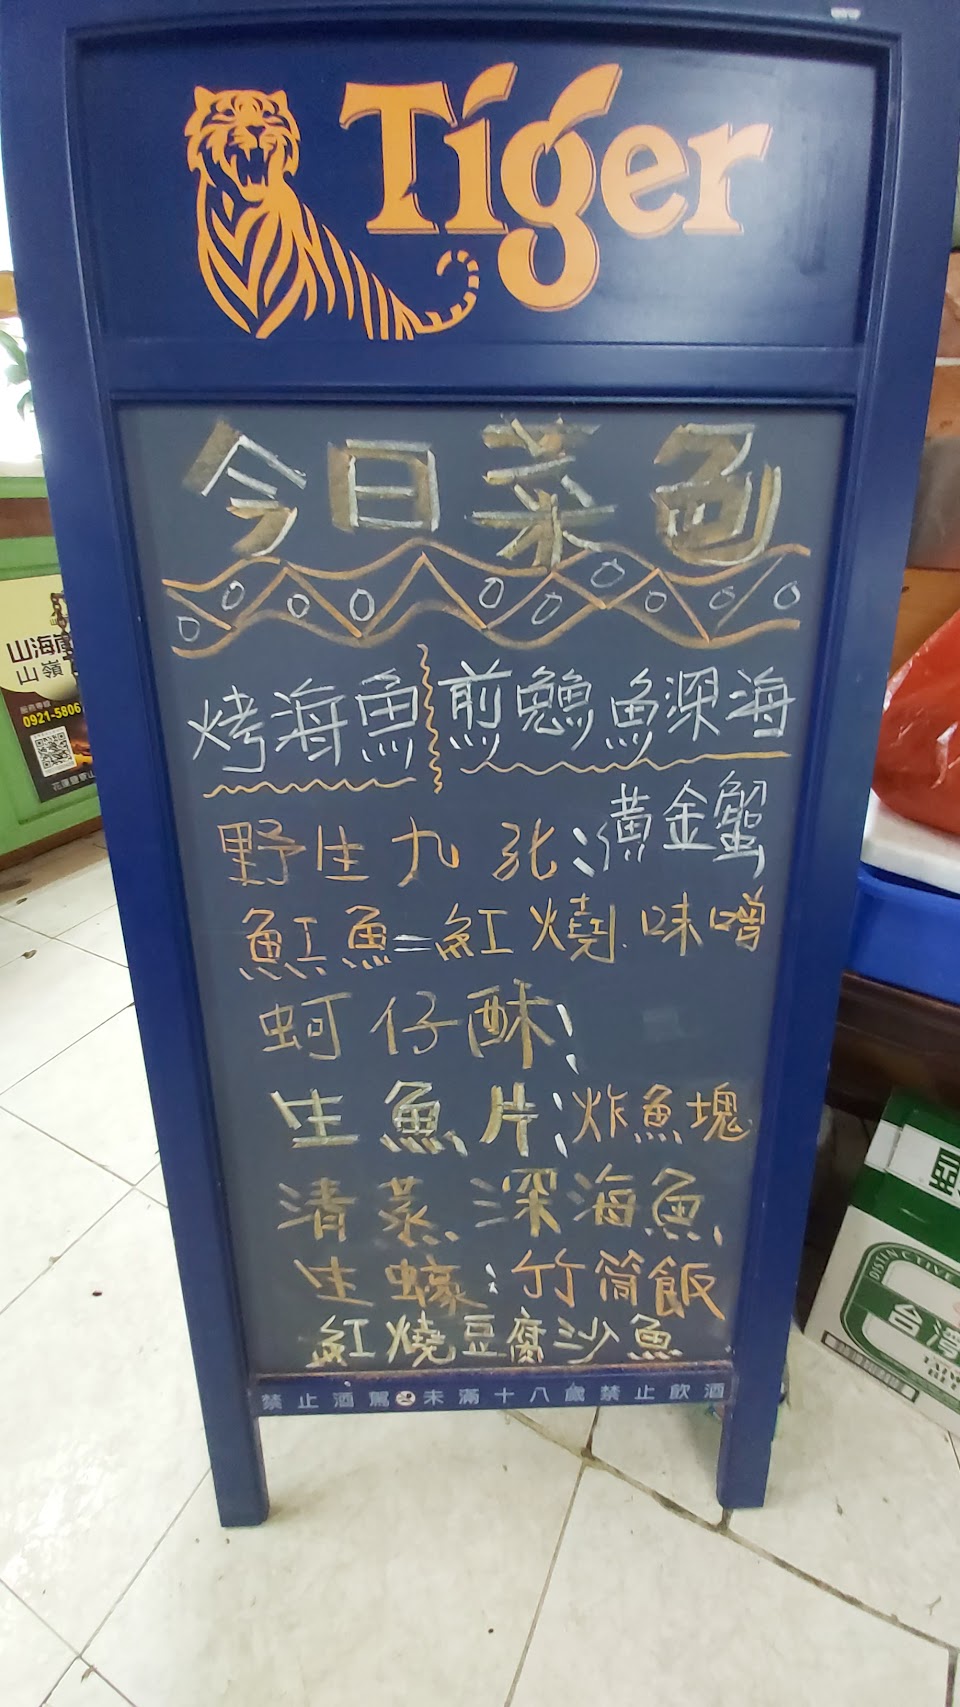 Tiger
今日菜色
烤海魚 煎鱈魚 深海
野生九孔;黃金蟹
魟魚=紅燒.味噌
蚵仔酥;
生魚片;炸魚塊
清蒸深海魚,
生蠔:竹筒飯
紅燒豆腐沙魚
禁止酒駕 未滿十八歲禁止飲酒
山海
山嶺
0921-5806
DISTINCTIVE
台灣